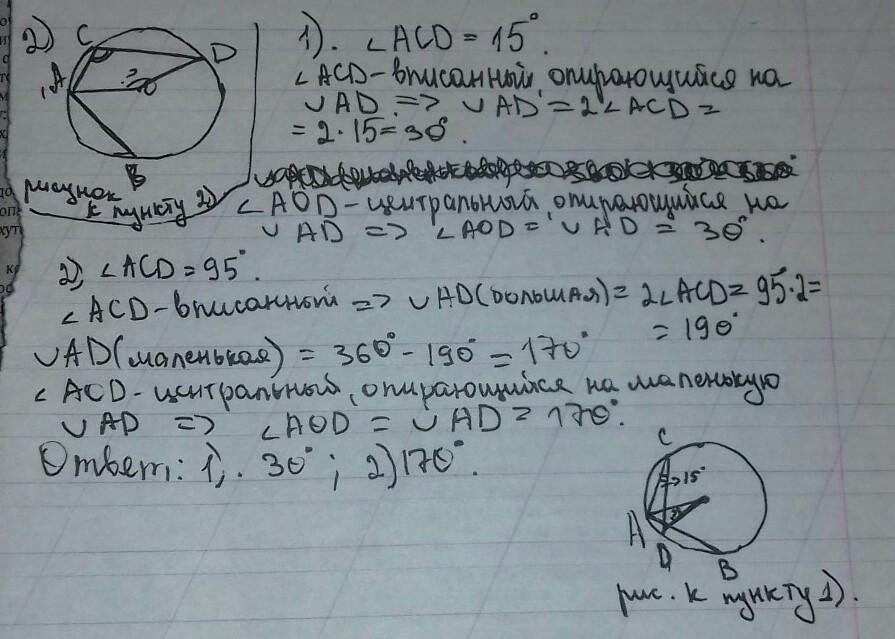 2)
C
D
A
?
O
B
рисунок
к пункту 2)
1). ∠ACD = 15°.
∠ACD - вписанный, опирающийся на
∪AD => ∪AD = 2∠ACD =
= 2·15 = 30°.
∠AOD - центральный, опирающийся на
∪AD => ∠AOD = ∪AD = 30°.
2) ∠ACD = 95°.
∠ACD - вписанный => ∪AD(большая) = 2∠ACD = 95·2 =
= 190°
∪AD(маленькая) = 360° - 190° = 170°
∠ACD - центральный, опирающийся на маленькую
∪AD => ∠AOD = ∪AD = 170°.
Ответ: 1). 30°; 2) 170°.
C
15°
A
D
B
рис. к пункту 1).